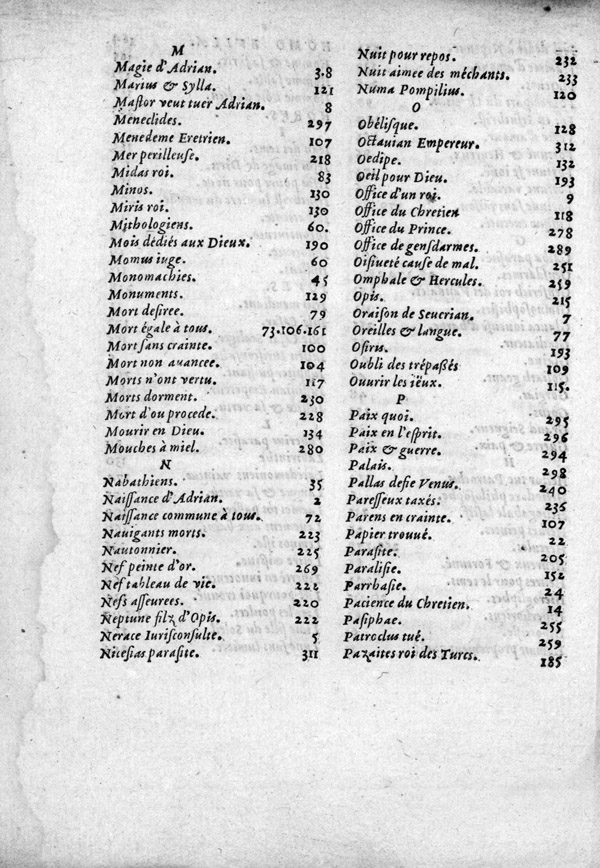 M
Magie d'Adrian. 3.8
Marius & Sylla. 121
Maſtor veut tuer Adrian. 8
Meneclides. 297
Menedeme Eretrien. 107
Mer perilleuſe. 218
Midas roi. 83
Minos. 130
Miris roi. 130
Mithologiens. 60.
Mois dédiés aux Dieux. 190
Momus iuge. 60
Monomachies. 45
Monuments. 129
Mort deſiree. 79
Mort égale à tous. 73.106.161
Mort ſans crainte. 100
Mort non auancee. 104
Morts n'ont vertu. 117
Morts dorment. 230
Mort d'ou procede. 228
Mourir en Dieu. 134
Mouches à miel. 280
N
Nabathiens. 35
Naiſſance d'Adrian. 2
Naiſſance commune à tous. 72
Nauigants morts. 223
Nautonnier. 225
Nef peinte d'or. 269
Nef tableau de vie. 222
Nefs aſſeurees. 220
Neptune filz d'Opis. 222
Nerace Iuriſconſulte. 5
Niceſias paraſite. 311
Nuit pour repos. 232
Nuit aimee des méchants. 233
Numa Pompilius. 120
O
Obéliſque. 128
Octauian Empereur. 312
Oedipe. 132
Oeil pour Dieu. 193
Office d'un roi. 9
Office du Chretien 118
Office du Prince. 278
Office de genſdarmes. 289
Oiſiueté cauſe de mal. 251
Omphale & Hercules. 259
Opis. 215
Oraiſon de Seucrian. 7
Oreilles & langue. 77
Oſiris. 193
Oubli des trépaßés 109
Ouurir les ïëux. 115.
P
Paix quoi. 295
Paix en l'eſprit. 296
Paix & guerre. 294
Palais. 298
Pallas deſie Venus. 240
Pareſſeux taxés. 236
Parens en crainte. 107
Papier trouué. 22
Paraſite. 205
Paraliſie. 152
Parrhaſie. 24
Pacience du Chretien. 14
Paſiphae. 255
Patroclus tué. 259
Pazaites roi des Turcs. 185